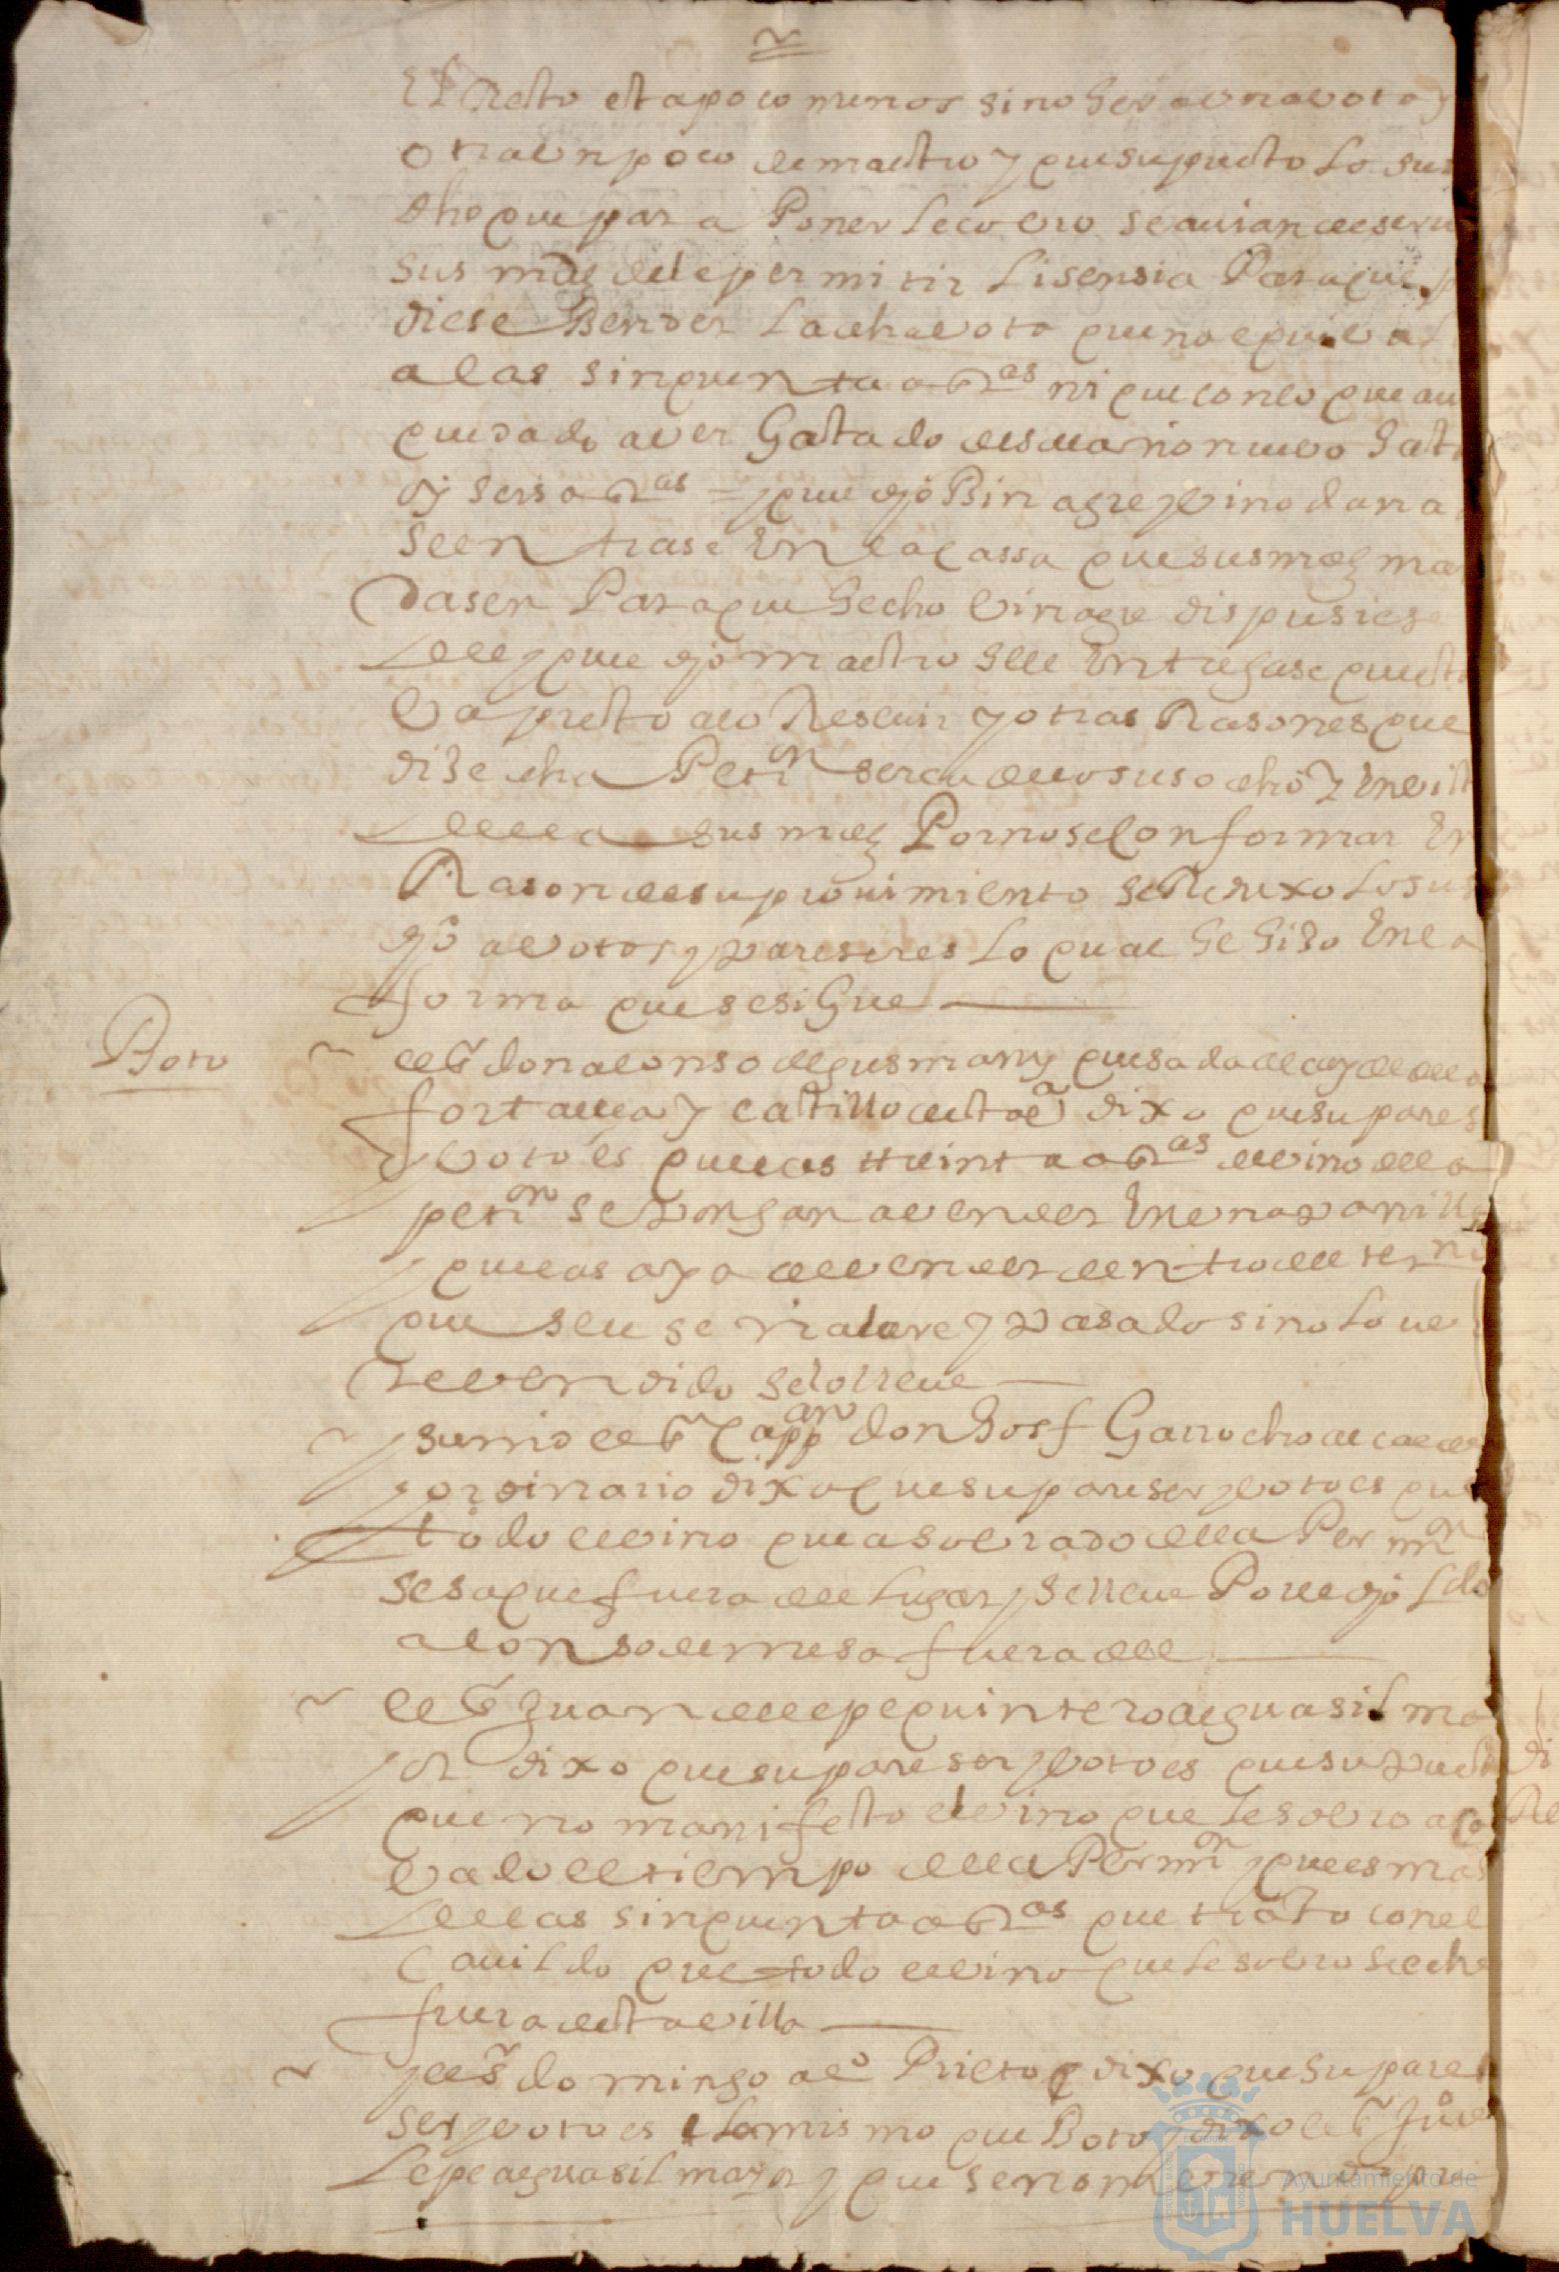 El resto esta poco menos sino ser a una vota y
otra un poco de maestro y que supuesto lo sus
dho que para Poner le cobro se auian de seru
sus mds de le permitir lisensia Para que p
diese Bender la dha vota que no equival
a las sinquenta a Ras ni que con lo que au
quedado aver Gastado desde año nuevo hast
oy seis a Ras = y que dho Binagre y vino dana
se entrase En la cassa que sus mds man
Dasen Para que hecho vinagre dispusiese
del y que dho maestro se le Entregase questa
va presto a lo Resevir y otras Rasones que
dise dha Petion serca de lo suso dho y En vist
della sus mds Por no se Conformar En
Rason de su prouimiento se Reduxo lo sus
dho a votos y pareseres lo qual se hiso En la
forma que se sigue
Boto
el sr don alonso de gusman y quesada alcayde de la
fortalesa y castillo desta va dixo que su pares
y voto es que las treinta a Ras de vino de la
petion se Pongan a vender En
y que las aya de vender dentro del termno
que se le señalare y Pasado sino lo ue
re vendido se lo lleve
y su md el sr Cappan don Josf Garrocho alcalde
ordinario dixo que su pareser y voto es que
todo el vino que a sobrado de la Permon
se saque fuera del lugar y se lleve Por el dho Ldo
alonso de mesa fuera del
el sr Juan de lepe quintero alguasil ma
yor dixo que su pareser y voto es que supuesto
que no manifesto el vino que le sobro aca
vado el tiempo de la Permon y que es mas
de las sinquenta a Ras que trato con el
Cauildo que todo el vino que le sobro se eche
fuera desta villa
y el sr domingo alo Prieto dixo que su pare
ser y voto es lo mismo que Boto y dixo el sr Juo de
Lepe alguasil mayor y que se
Ayuntamiento de
HUELVA